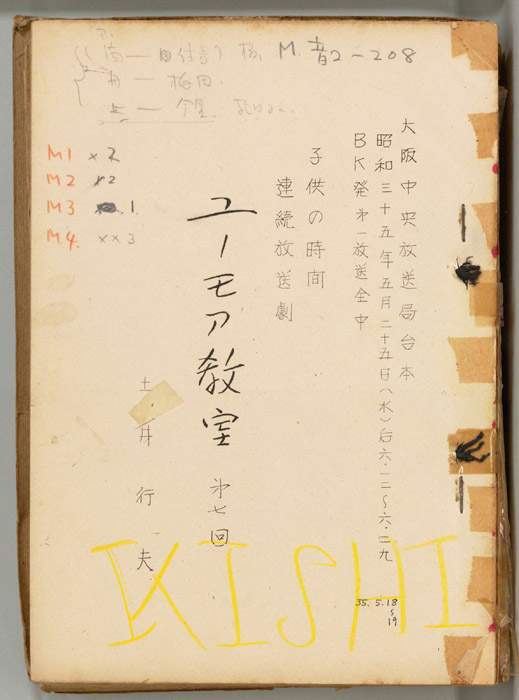 M. 音2-208
M1 ×2
M2 ×2
M3 1.
M4. ××3
大阪中央放送局台本
昭和三十五年五月二十五日(水)后六・一二〜六・二九
BK発第一放送全中
子供の時間
連続放送劇
ユーモア教室 第七回
土井行夫
35.5.18
〜
19
KISHI